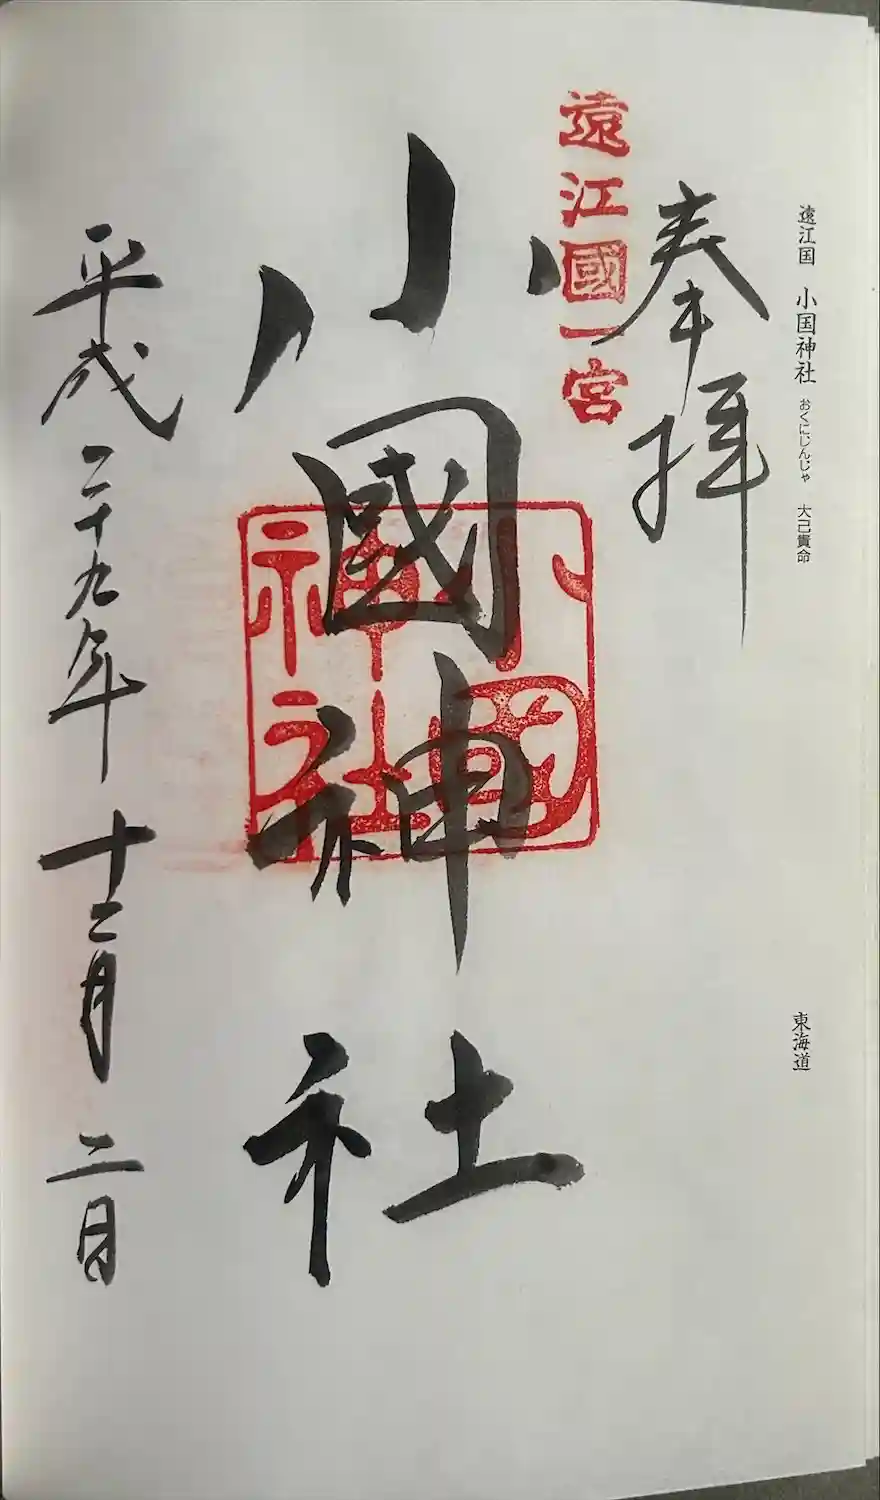 遠江国 小国神社 おくにじんじゃ 大己貴命
東海道
奉拝
遠江國一宮
小國神社
小國神社
平成二十九年十二月二日